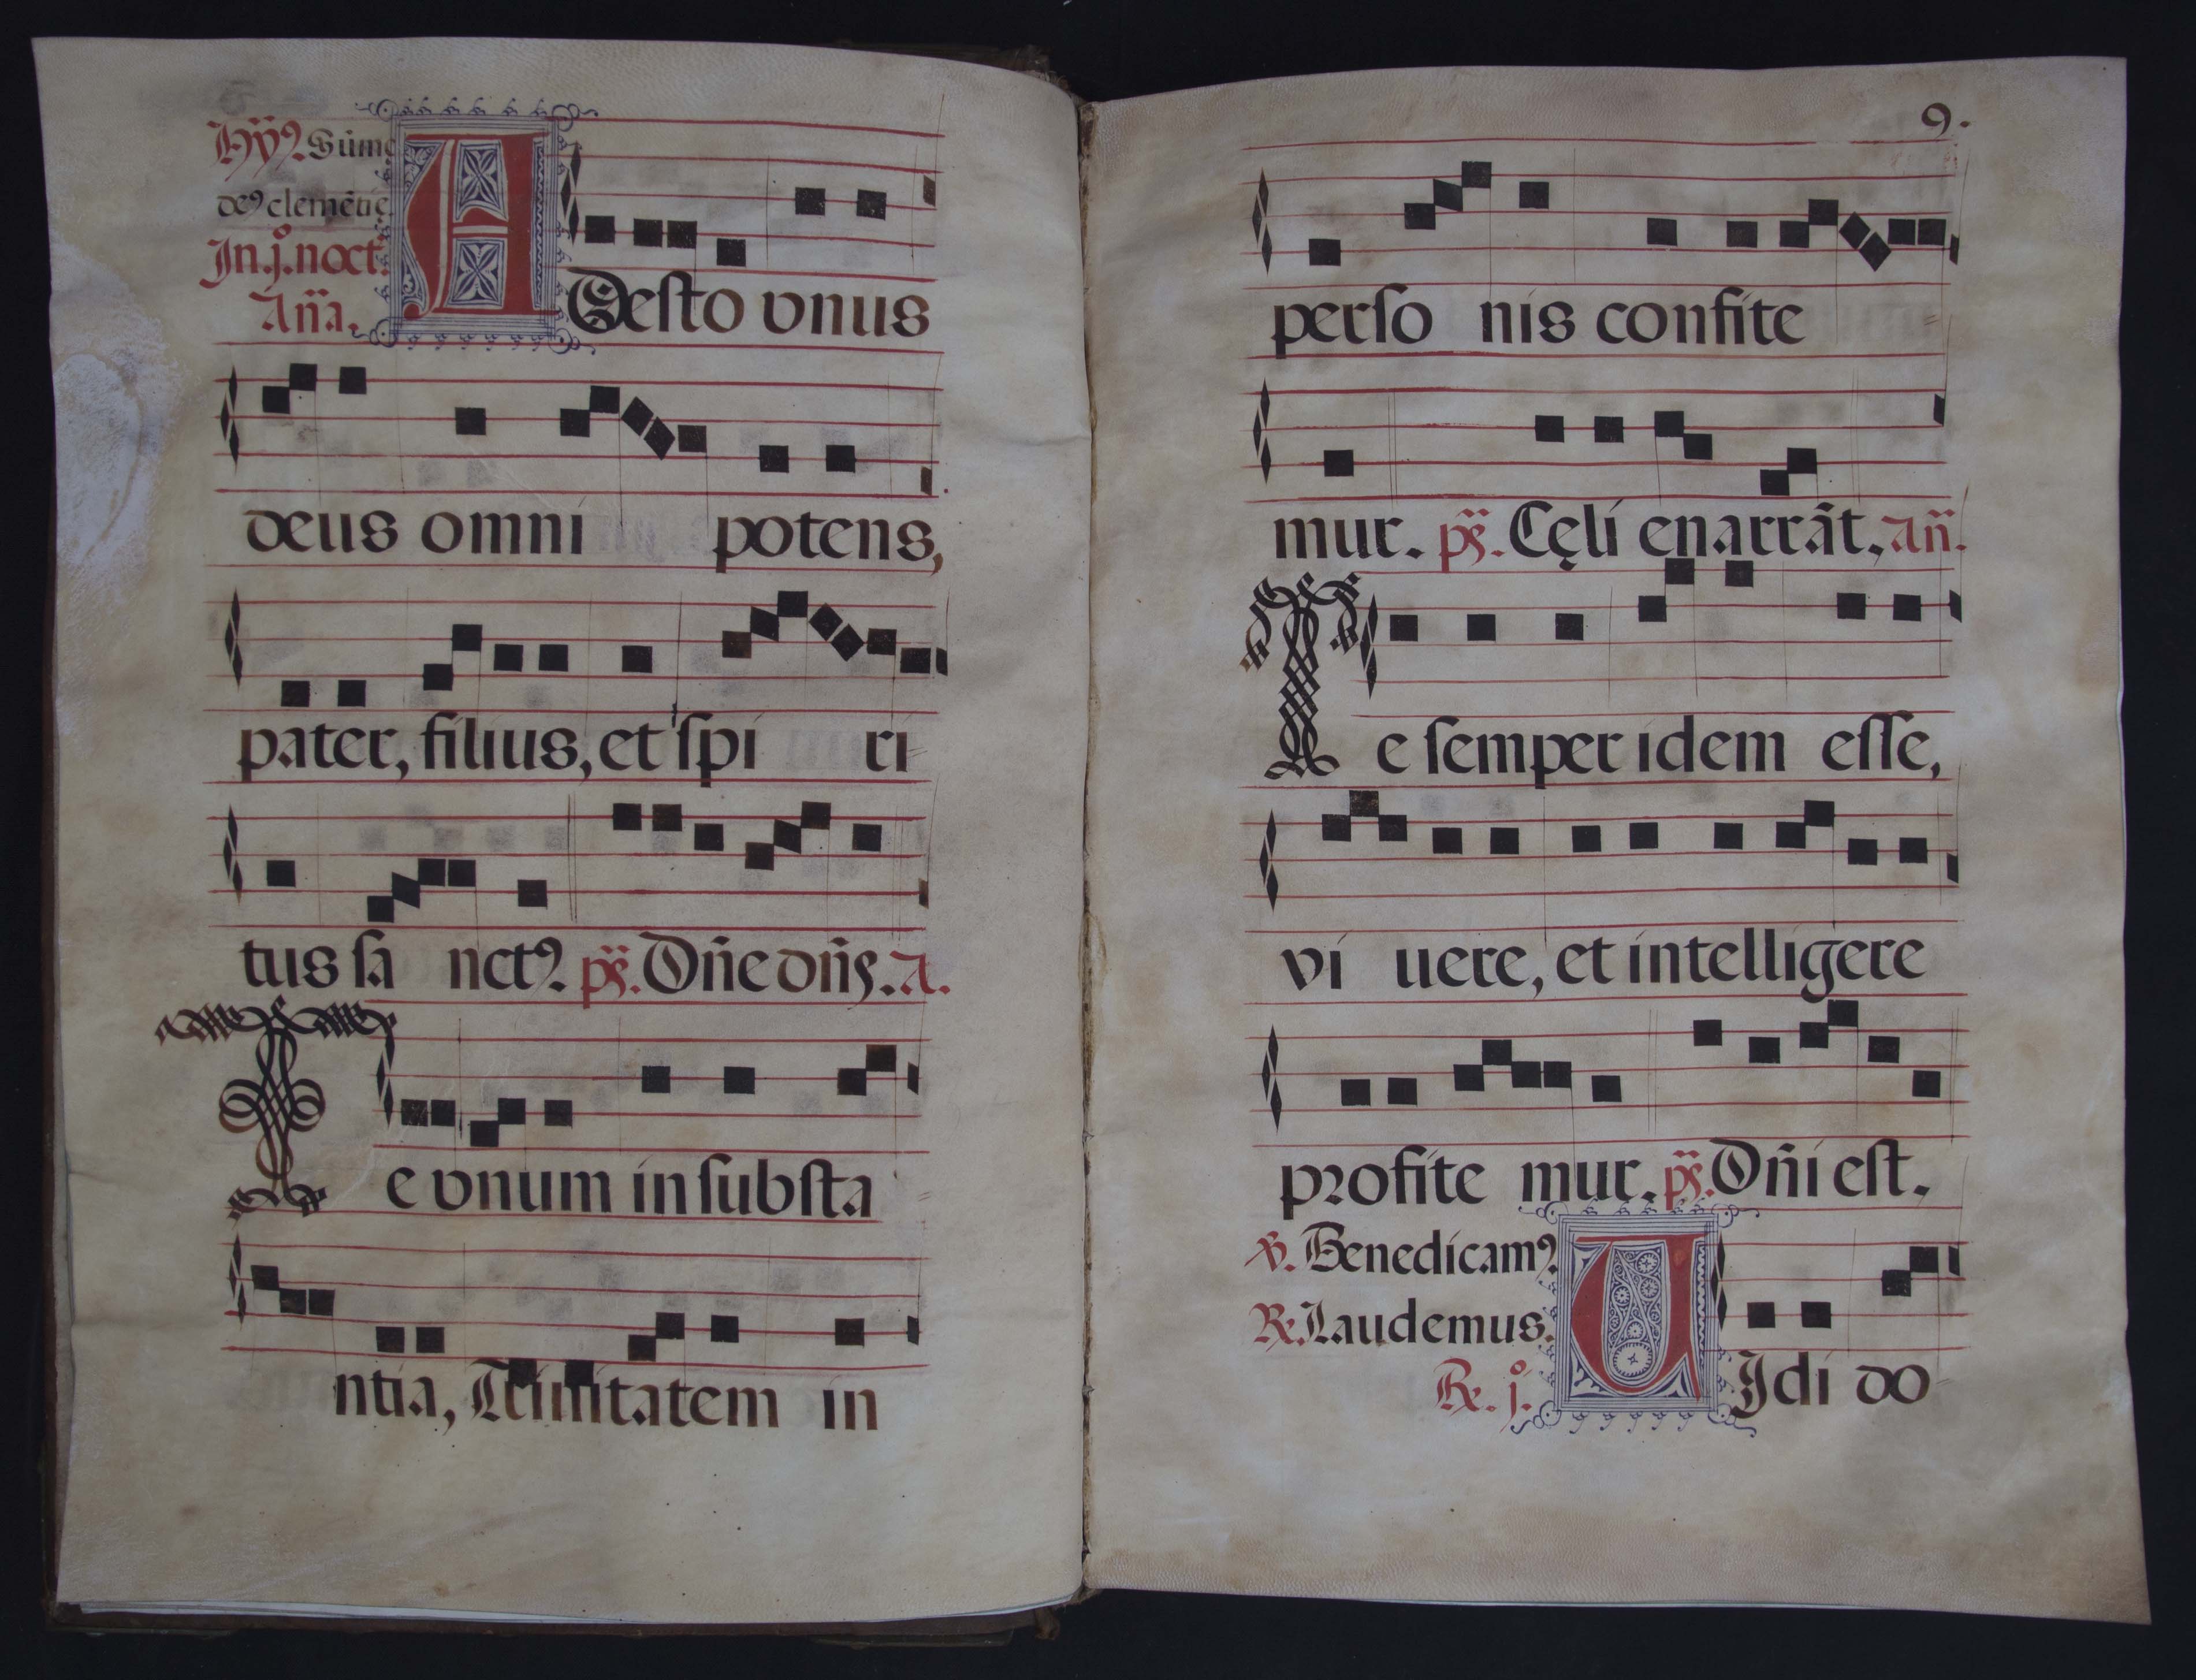 Hÿꝰ Sūme
deꝰ clemētię
In .j.º noct.
Añа.
ADesto vnus
deus omni potens,
pater, filius, et ſpi ri
tus ſa nctꝰ ps. Dñe dñs. A.
Te vnum in ſubſta
ntia, Trinitatem in
9.
perſo nis confite
mur. ps. Cęli enarrāt, Añ.
Te ſemper idem eſſe,
vi uere, et intelligere
profite mur. ps. Dñi eſt.
℣. Benedicamꝰ
℟. Laudemus.
℟. jº.
VIdi do